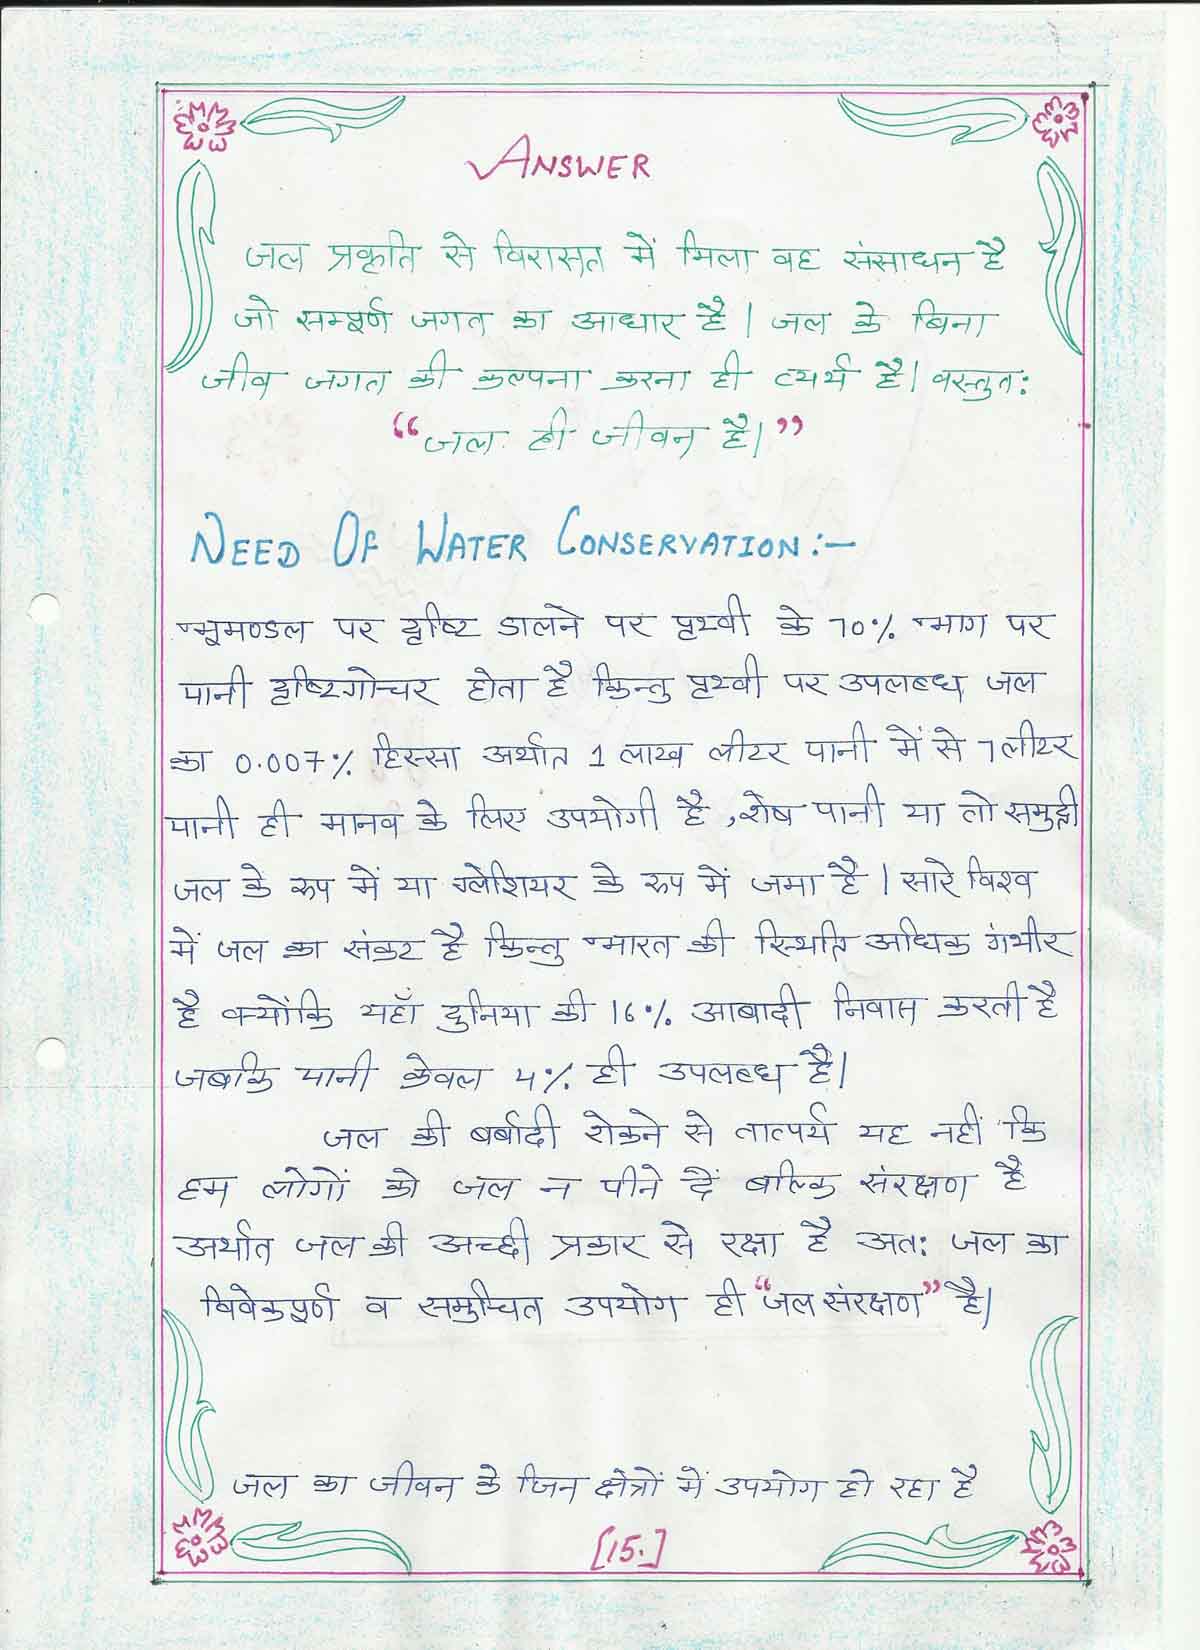 ANSWER
जल प्रकृति से विरासत में मिला वह संसाधन है
जो सम्पूर्ण जगत का आधार है। जल के बिना
जीव जगत की कल्पना करना ही व्यर्थ है। वस्तुत:
“जल ही जीवन है।”
NEED OF WATER CONSERVATION:-
भूमण्डल पर दृष्टि डालने पर पृथ्वी के 70% भाग पर
पानी दृष्टिगोचर होता है किन्तु पृथ्वी पर उपलब्ध जल
का 0.007% हिस्सा अर्थात 1 लाख लीटर पानी में से 7 लीटर
पानी ही मानव के लिए उपयोगी है, शेष पानी या तो समुद्री
जल के रूप में या ग्लेशियर के रूप में जमा है। सारे विश्व
में जल का संकट है किन्तु भारत की स्थिति अधिक गंभीर
है क्योंकि यहाँ दुनिया की 16% आबादी निवास करती है
जबकि पानी केवल 4% ही उपलब्ध है।
जल की बर्बादी रोकने से तात्पर्य यह नहीं कि
हम लोगों को जल न पीने दें बल्कि संरक्षण है
अर्थात जल की अच्छी प्रकार से रक्षा है अत: जल का
विवेकपूर्ण व समुचित उपयोग ही “जल संरक्षण” है।
जल का जीवन के जिन क्षेत्रों में उपयोग हो रहा है
[15.]